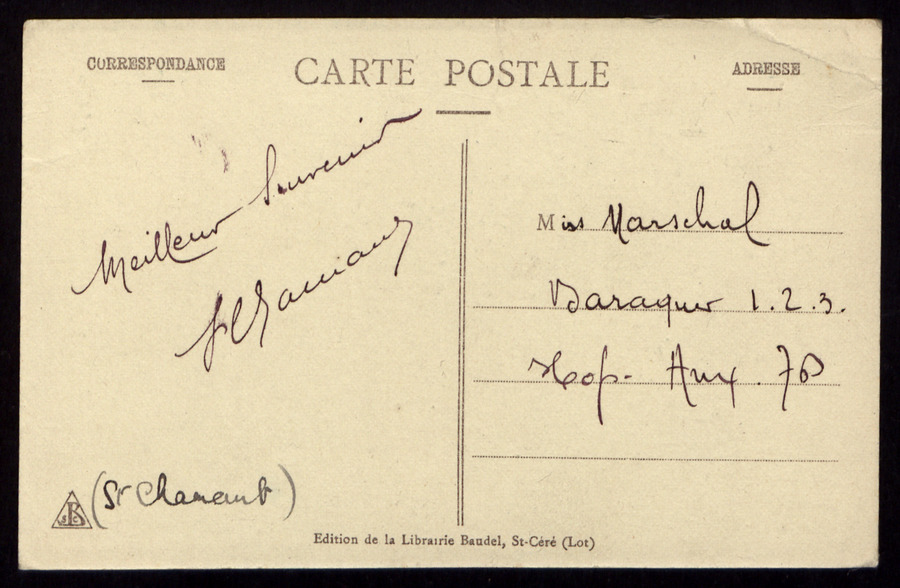 CORRESPONDANCE
CARTE POSTALE
ADRESSE
Meilleur Souvenir
Miss Marschal
Baraques 1.2.3.
Hop. Aux. 76
(St Chamant)
Edition de la Librairie Baudel, St-Céré (Lot)